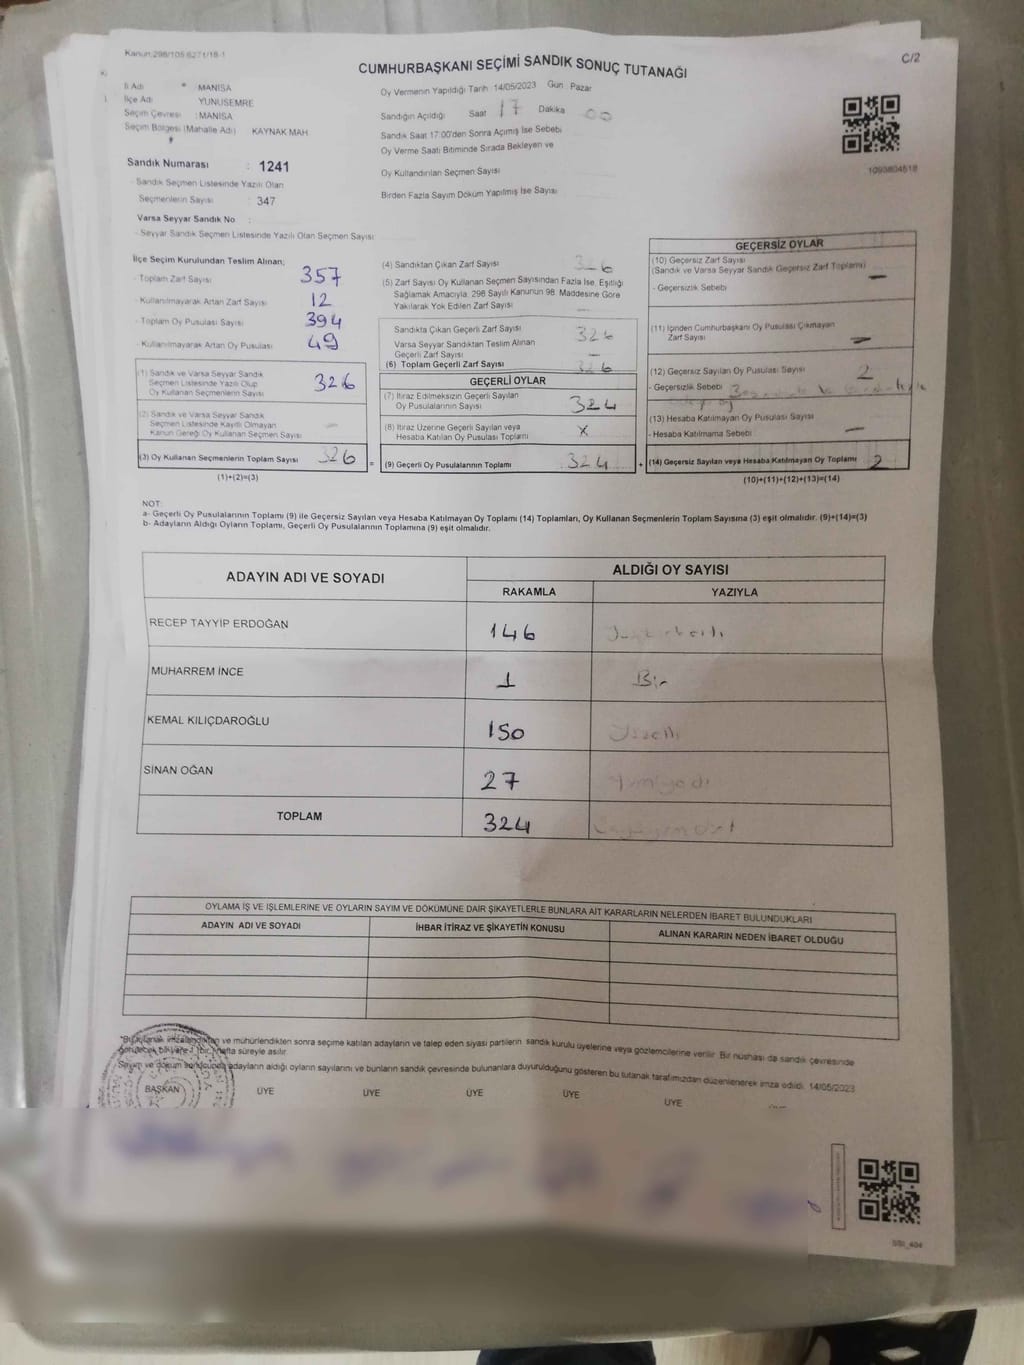 Kanun:298/105 6271/18-1
C/2
CUMHURBAŞKANI SEÇİMİ SANDIK SONUÇ TUTANAĞI
İl Adı MANİSA
İlçe Adı YUNUSEMRE
Seçim Çevresi : MANİSA
Seçim Bölgesi (Mahalle Adı) KAYNAK MAH
Sandık Numarası : 1241
- Sandık Seçmen Listesinde Yazılı Olan
Seçmenlerin Sayısı : 347
Varsa Seyyar Sandık No :
- Seyyar Sandık Seçmen Listesinde Yazılı Olan Seçmen Sayısı
Oy Vermenin Yapıldığı Tarih 14/05/2023 Gün Pazar
Sandığın Açıldığı Saat 17 Dakika 00
Sandık Saat 17:00'den Sonra Açımış İse Sebebi
Oy Verme Saati Bitiminde Sırada Bekleyen ve
Oy Kullandırılan Seçmen Sayısı
Birden Fazla Sayım Döküm Yapılmış İse Sayısı
1093804518
İlçe Seçim Kurulundan Teslim Alınan;
- Toplam Zarf Sayısı 357
- Kullanılmayarak Artan Zarf Sayısı 12
- Toplam Oy Pusulası Sayısı 394
- Kullanılmayarak Artan Oy Pusulası 49
(1) Sandık ve Varsa Seyyar Sandık
Seçmen Listesinde Yazılı Olup
Oy Kullanan Seçmenlerin Sayısı 326
(2) Sandık ve Varsa Seyyar Sandık
Seçmen Listesinde Kayıtlı Olmayan
Kanun Gereği Oy Kullanan Seçmen Sayısı -
(3) Oy Kullanan Seçmenlerin Toplam Sayısı 326
(1)+(2)=(3)
(4) Sandıktan Çıkan Zarf Sayısı 326
(5) Zarf Sayısı Oy Kullanan Seçmen Sayısından Fazla İse, Eşitliği
Sağlamak Amacıyla, 298 Sayılı Kanunun 98. Maddesine Göre
Yakılarak Yok Edilen Zarf Sayısı -
Sandıkta Çıkan Geçerli Zarf Sayısı 326
Varsa Seyyar Sandıktan Teslim Alınan
Geçerli Zarf Sayısı -
(6) Toplam Geçerli Zarf Sayısı 326
GEÇERLİ OYLAR
(7) İtiraz Edilmeksizin Geçerli Sayılan
Oy Pusulalarının Sayısı 324
(8) İtiraz Üzerine Geçerli Sayılan veya
Hesaba Katılan Oy Pusulası Toplamı X
= (9) Geçerli Oy Pusulalarının Toplamı 324 +
GEÇERSİZ OYLAR
(10) Geçersiz Zarf Sayısı
(Sandık ve Varsa Seyyar Sandık Geçersiz Zarf Toplamı) -
- Geçersizlik Sebebi
(11) İçinden Cumhurbaşkanı Oy Pusulası Çıkmayan
Zarf Sayısı -
(12) Geçersiz Sayılan Oy Pusulası Sayısı 2
- Geçersizlik Sebebi
(13) Hesaba Katılmayan Oy Pusulası Sayısı -
- Hesaba Katılmama Sebebi
(14) Geçersiz Sayılan veya Hesaba Katılmayan Oy Toplamı 2
(10)+(11)+(12)+(13)=(14)
NOT:
a- Geçerli Oy Pusulalarının Toplamı (9) ile Geçersiz Sayılan veya Hesaba Katılmayan Oy Toplamı (14) Toplamları, Oy Kullanan Seçmenlerin Toplam Sayısına (3) eşit olmalıdır. (9)+(14)=(3)
b- Adayların Aldığı Oyların Toplamı, Geçerli Oy Pusulalarının Toplamına (9) eşit olmalıdır.
ADAYIN ADI VE SOYADI ALDIĞI OY SAYISI
RAKAMLA YAZIYLA
RECEP TAYYİP ERDOĞAN 146
MUHARREM İNCE 1 Bir
KEMAL KILIÇDAROĞLU 150 Yüzelli
SİNAN OĞAN 27 Yirmiyedi
TOPLAM 324
OYLAMA İŞ VE İŞLEMLERİNE VE OYLARIN SAYIM VE DÖKÜMÜNE DAİR ŞİKAYETLERLE BUNLARA AİT KARARLARIN NELERDEN İBARET BULUNDUKLARI
ADAYIN ADI VE SOYADI İHBAR İTİRAZ VE ŞİKAYETİN KONUSU ALINAN KARARIN NEDEN İBARET OLDUĞU
ve mühürlendikten sonra seçime katılan adayların ve talep eden siyasi partilerin sandık kurulu üyelerine veya gözlemcilerine verilir. Bir nüshası da sandık çevresinde
hafta süreyle asılır.
Sayım ve döküm sonucunda adayların aldığı oyların sayılarını ve bunların sandık çevresinde bulunanlara duyurulduğunu gösteren bu tutanak tarafımızdan düzenlenerek imza edildi. 14/05/2023
BAŞKAN ÜYE ÜYE ÜYE ÜYE ÜYE